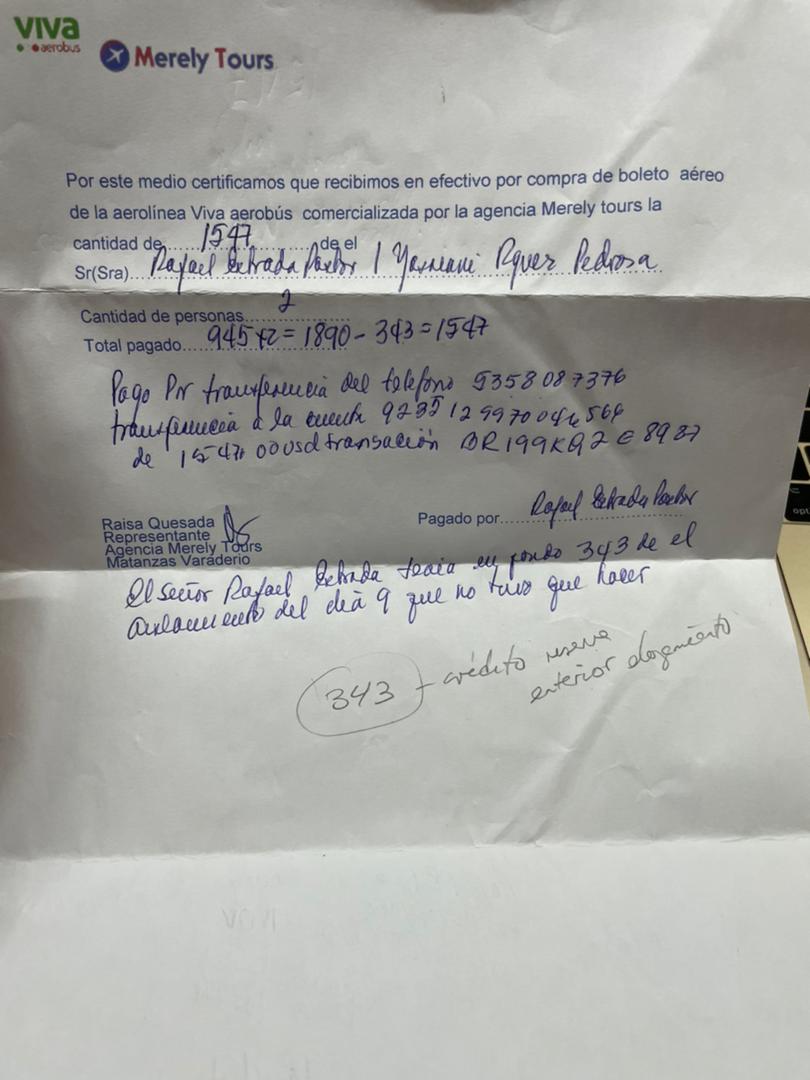 viva
aerobus
Merely Tours
Por este medio certificamos que recibimos en efectivo por compra de boleto aéreo
de la aerolínea Viva aerobús comercializada por la agencia Merely tours la
cantidad de.....1547...............de el
Sr(Sra)....Rafael Estrada Pastor / Yasmani Pedrosa
Cantidad de personas....2
Total pagado....945x2=1890-343=1547
Pago Por transferencia del telefono 5358087376
transferencia a la cuenta
de 1547.00 usd transación
Raisa Quesada
Representante
Agencia Merely Tours
Matanzas Varaderio
Pagado por....Rafael Estrada Pastor
El señor Rafael Estrada tenia en fondo 343 de el
aislamiento del dia 9 que no tuvo que hacer
343 - crédito reserva
anterior alojamiento